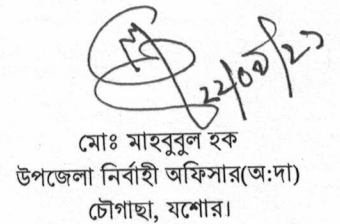 মোঃ মাহবুবুল হক
উপজেলা নির্বাহী অফিসার(অ:দা)
চৌগাছা, যশোর।